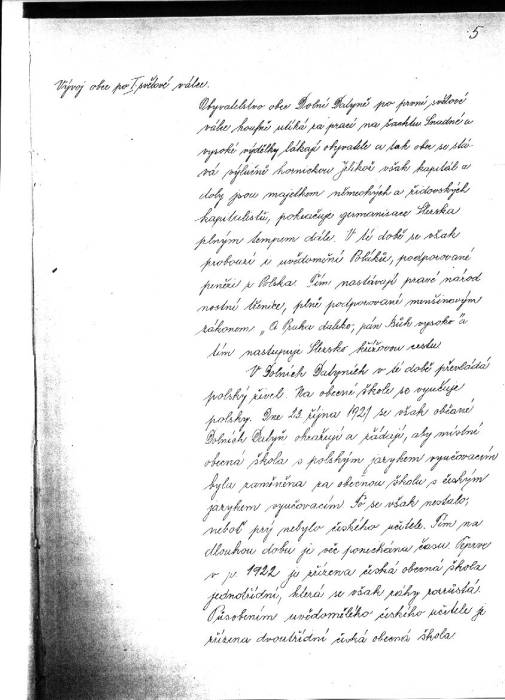 5
Vývoj obce po I světové válce.
Obyvatelstvo obce Dolné Datyně po první světové
válce houfně utíká za prací na šachtu Snadné a
vysoké výdělky lákají obyvatele a tak obec se stá-
vá výlučně hornickou Jelikož však kapitál a
doby jsou majetkem německých a židovských
kapitalistů, pokračuje germanisace Slezska
plným tempem dále. V té době se však
probouzí i uvědomění Poláků, podporované
penězi z Polska. Tím nastávají pravé národ
nostní třenice, plně podporované menšinovým
zákonem „A Praha daleko, pán Bůh vysoko" a
tím nastupuje Slezsko křížovou cestu
V Dolních Datyních v té době převládá
polský živel. Na obecné škole se vyučuje
polsky. Dne 23. října 1921 se však občané
Dolních Datyň a žádají, aby místní
obecná škola s polským jazykem vyučovacím
byla zaměněna za obecnou školu s českým
jazykem vyučovacím To se však nestalo,
neboť prý nebylo českého učitele. Tím na
dlouhou dobu je věc ponechána času. Teprve
v r. 1922 je zřízena česká obecná škola
jednotřídní, která se však záhy rozrůstá.
Působením uvědomělého českého učitele je
zřízena dvoutřídní česká obecná škola